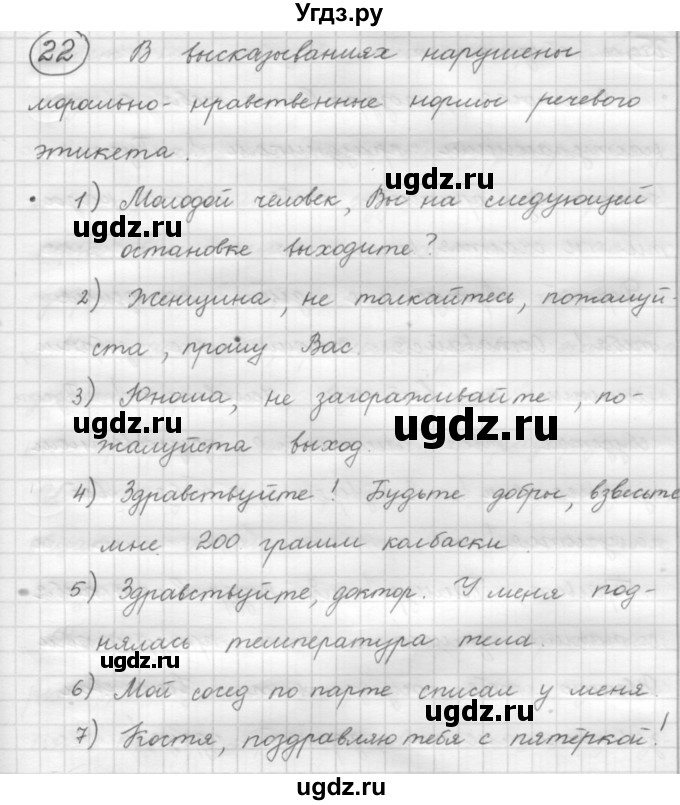 Угдз.ру
22 В высказываниях нарушены
морально- нравственные нормы речевого
этикета.
1) Молодой человек, Вы на следующей
ugdz.ru ugdz.ru
остановке выходите?
2) Женщина, не толкайтесь, пожалуй-
ста, прошу Вас.
3) Юноша, не загораживайте, по-
ugdz.ru ugdz.ru
жалуйста выход.
4) Здравствуйте! Будьте добры, взвесьте
мне 200 грамм колбаски
5) Здравствуйте, доктор. У меня под-
нялась температура тела.
ugdz.ru
6) Мой сосед по парте списал у меня.
ugdz.ru
7) Костя, поздравляю тебя с пятёркой!
ugdz.ru